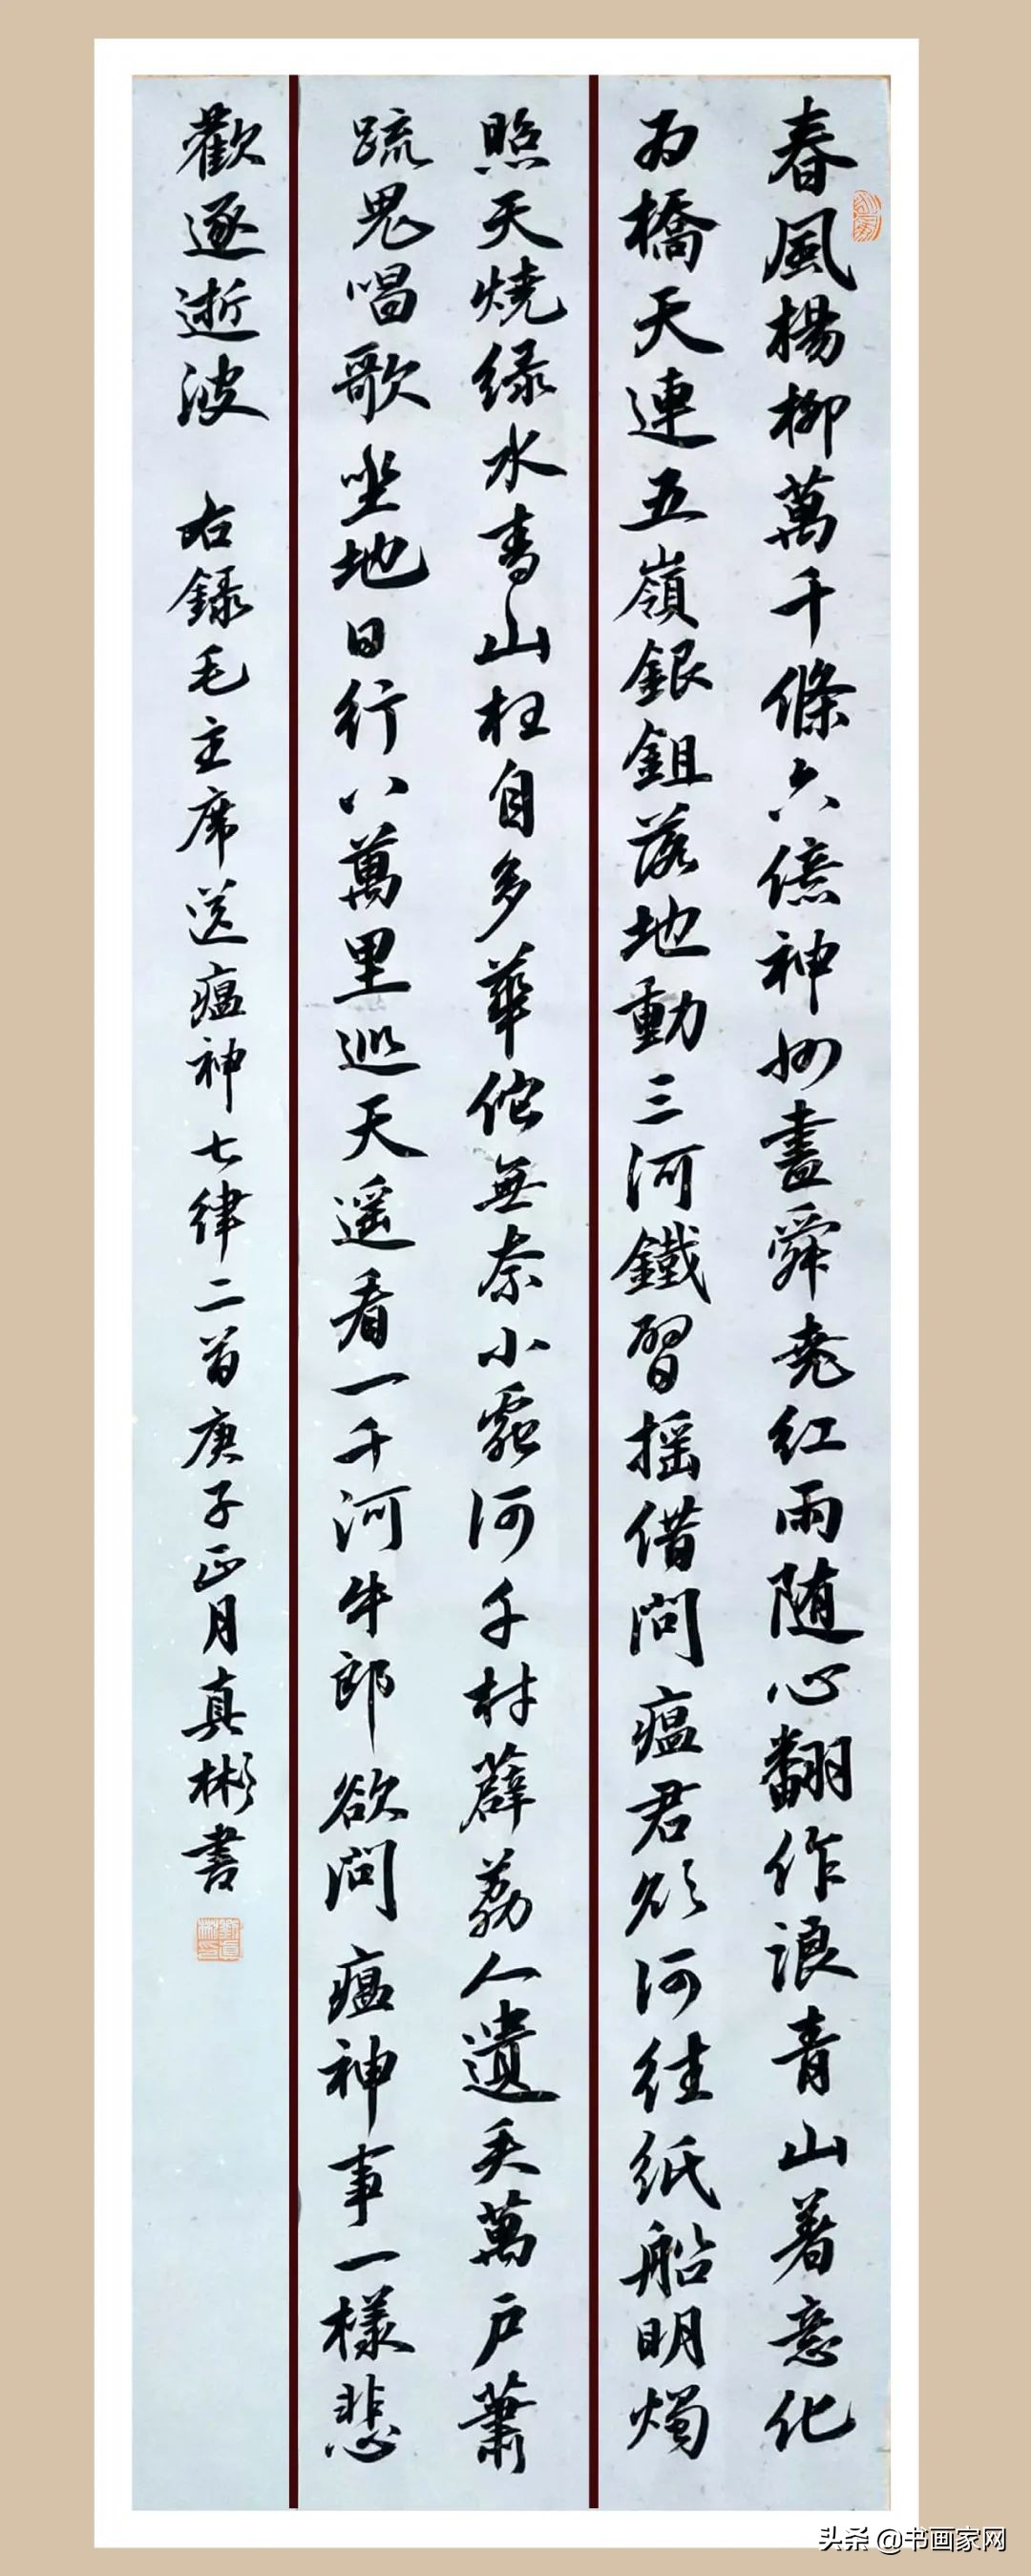 春風楊柳萬千條六億神州盡舜堯紅雨随心翻作浪青山著意化
为橋天連五嶺銀鉏落地動三河鐵臂摇借問瘟君欲何往紙船明燭
照天燒绿水青山枉自多華佗無奈小蟲何千村薜荔人遺矢萬户蕭
疏鬼唱歌坐地日行八萬里巡天遥看一千河牛郎欲問瘟神事一樣悲
歡逐逝波 右錄毛主席送瘟神七律二首庚子正月真彬書
头条 @书画家网